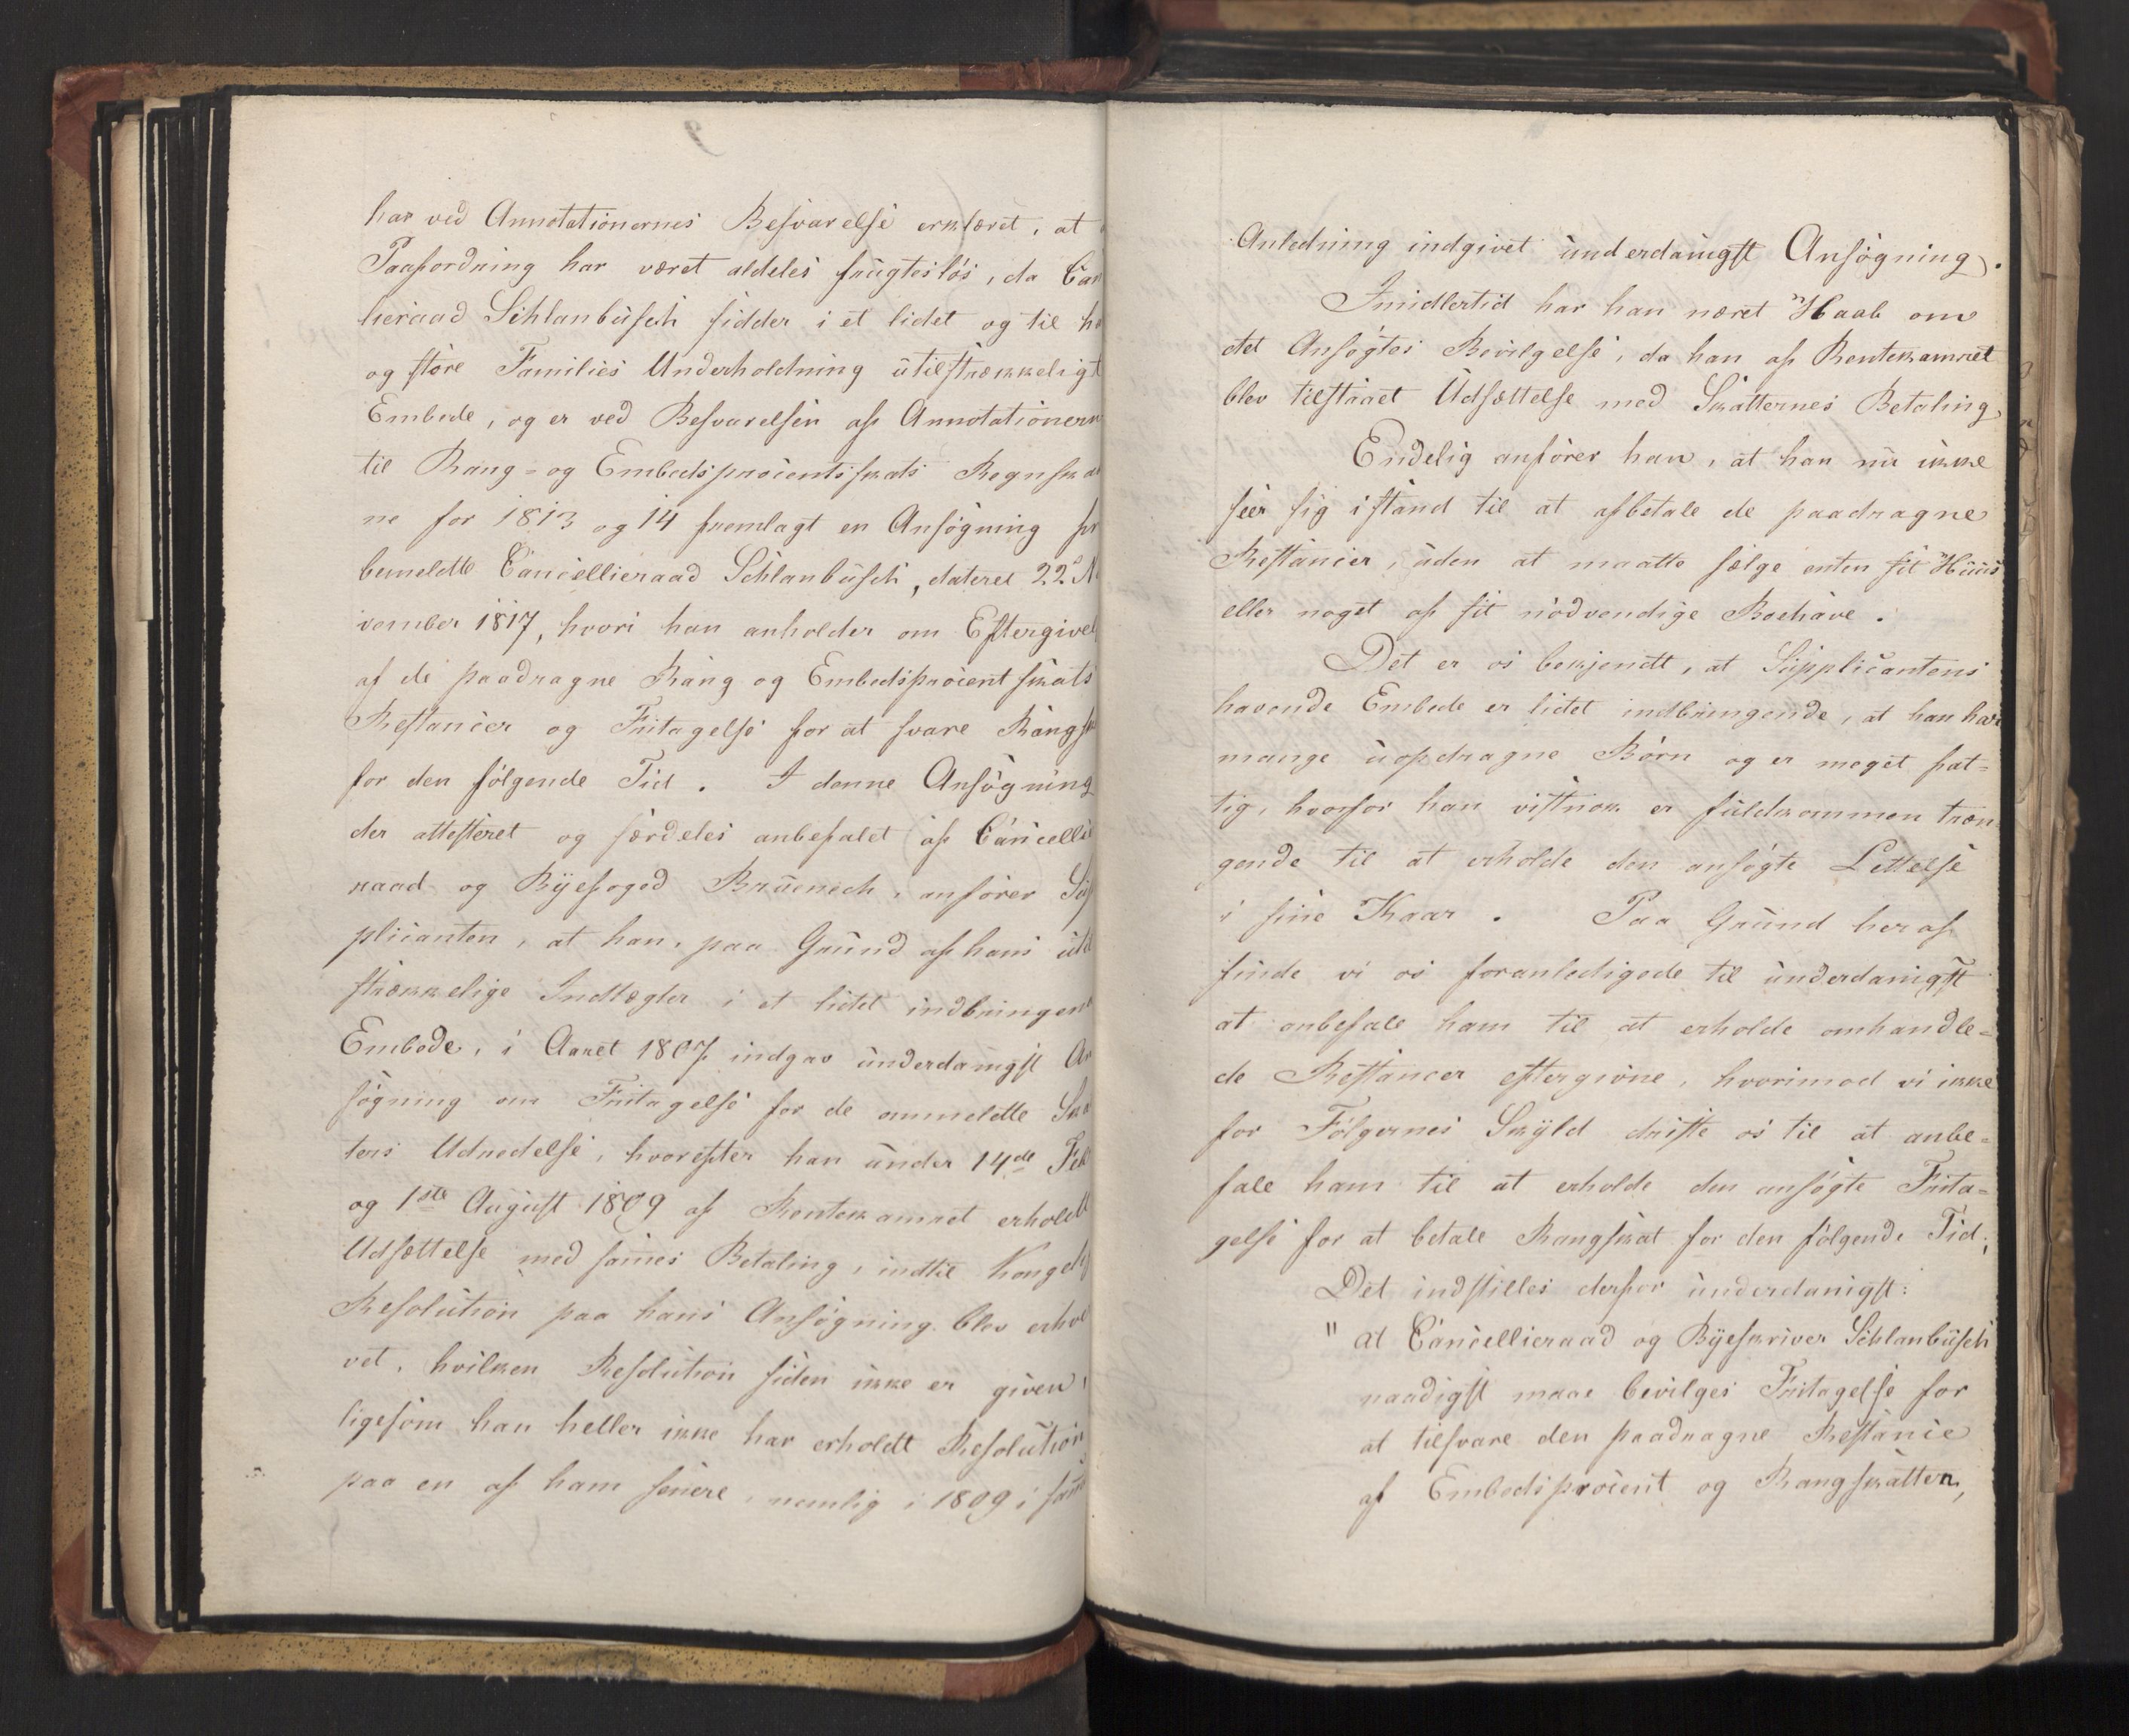 har ved Annotationernes Besvarelse erklæret, at
Paafordring har været aldeles frugtesløs, da Can
lieraad Schlanbusch sidder i et lidet og til ha
og store Families Underholdning utilstrækkeligt
Embede, og er ved Besvarelsen af Annotationern
til Rang- og Embedsprocentskats Regnska
ne for 1813 og 14 fremlagt en Ansøgning fr
bemeldte Cancellieraad Schlanbusch, dateret 22d No
vember 1817, hvori han anholder om Eftergivel
af de paadragne Rang og Embedsprocent skats
Restancer og Fritagelse for at svare Rangsk
for den følgende Tid. I denne Ansøgning
der attesteret og særdeles anbefalet af Cancellie
raad og Byefoged Brüenech, anfører Sup
plicanten, at han, paa Grund af hans util
strækkelige Indtægter i et lidet indbringend
Embede, i Aaret 1807 indgav underdanigst An
søgning om Fritagelse for de ommeldte Ska
ters Udredelse, hvorefter han under 14de Feb
og 1ste August 1809 af Rentekamret erholdt
Udsættelse med sammes Betaling, indtil Kongelig
Resolution paa hans Ansøgning blev erhver
vet, hvilken Resolution siden ikke er given,
ligesom han heller ikke har erholdt Resolution
paa en af ham senere, nemlig i 1809 i samme
Anledning indgivet underdanigst Ansøgning.
Imidlertid har han næret Haab om
det Ansøgtes Bevilgelse, da han af Rentekamret
blev tilstaaet Udsættelse med Skatternes Betaling.
Endelig anfører han, at han nu ikke
seer sig istand til at afbetale de paadragne
Restancer, uden at maatte sælge enten sit Huus
eller noget af sit nødvendige Boehave.
Det er os bekjendt, at Supplicantens
havende Embede er lidet indbringende, at han har
mange uopdragne Børn og er meget fat-
tig, hvorfor han vistnok er fuldkommen træn-
gende til at erholde den ansøgte Lettelse
i sine Kaar. Paa Grund heraf
finde vi os foranledigede til underdanigst
at anbefale ham til at erholde omhandle-
de Restancer eftergivne, hvorimod vi ikke
for Følgernes Skyld driste os til at anbe-
fale ham til at erholde den ansøgte Frita-
gelse for at betale Rangskat for den følgende Tid;
Det indstilles derfor underdanigst:
" at Cancellieraad og Byeskriver Schlanbusch
naadigst maae bevilges Fritagelse for
at tilsvare den paadragne Restance
af Embedsprocent og Rangskatten,